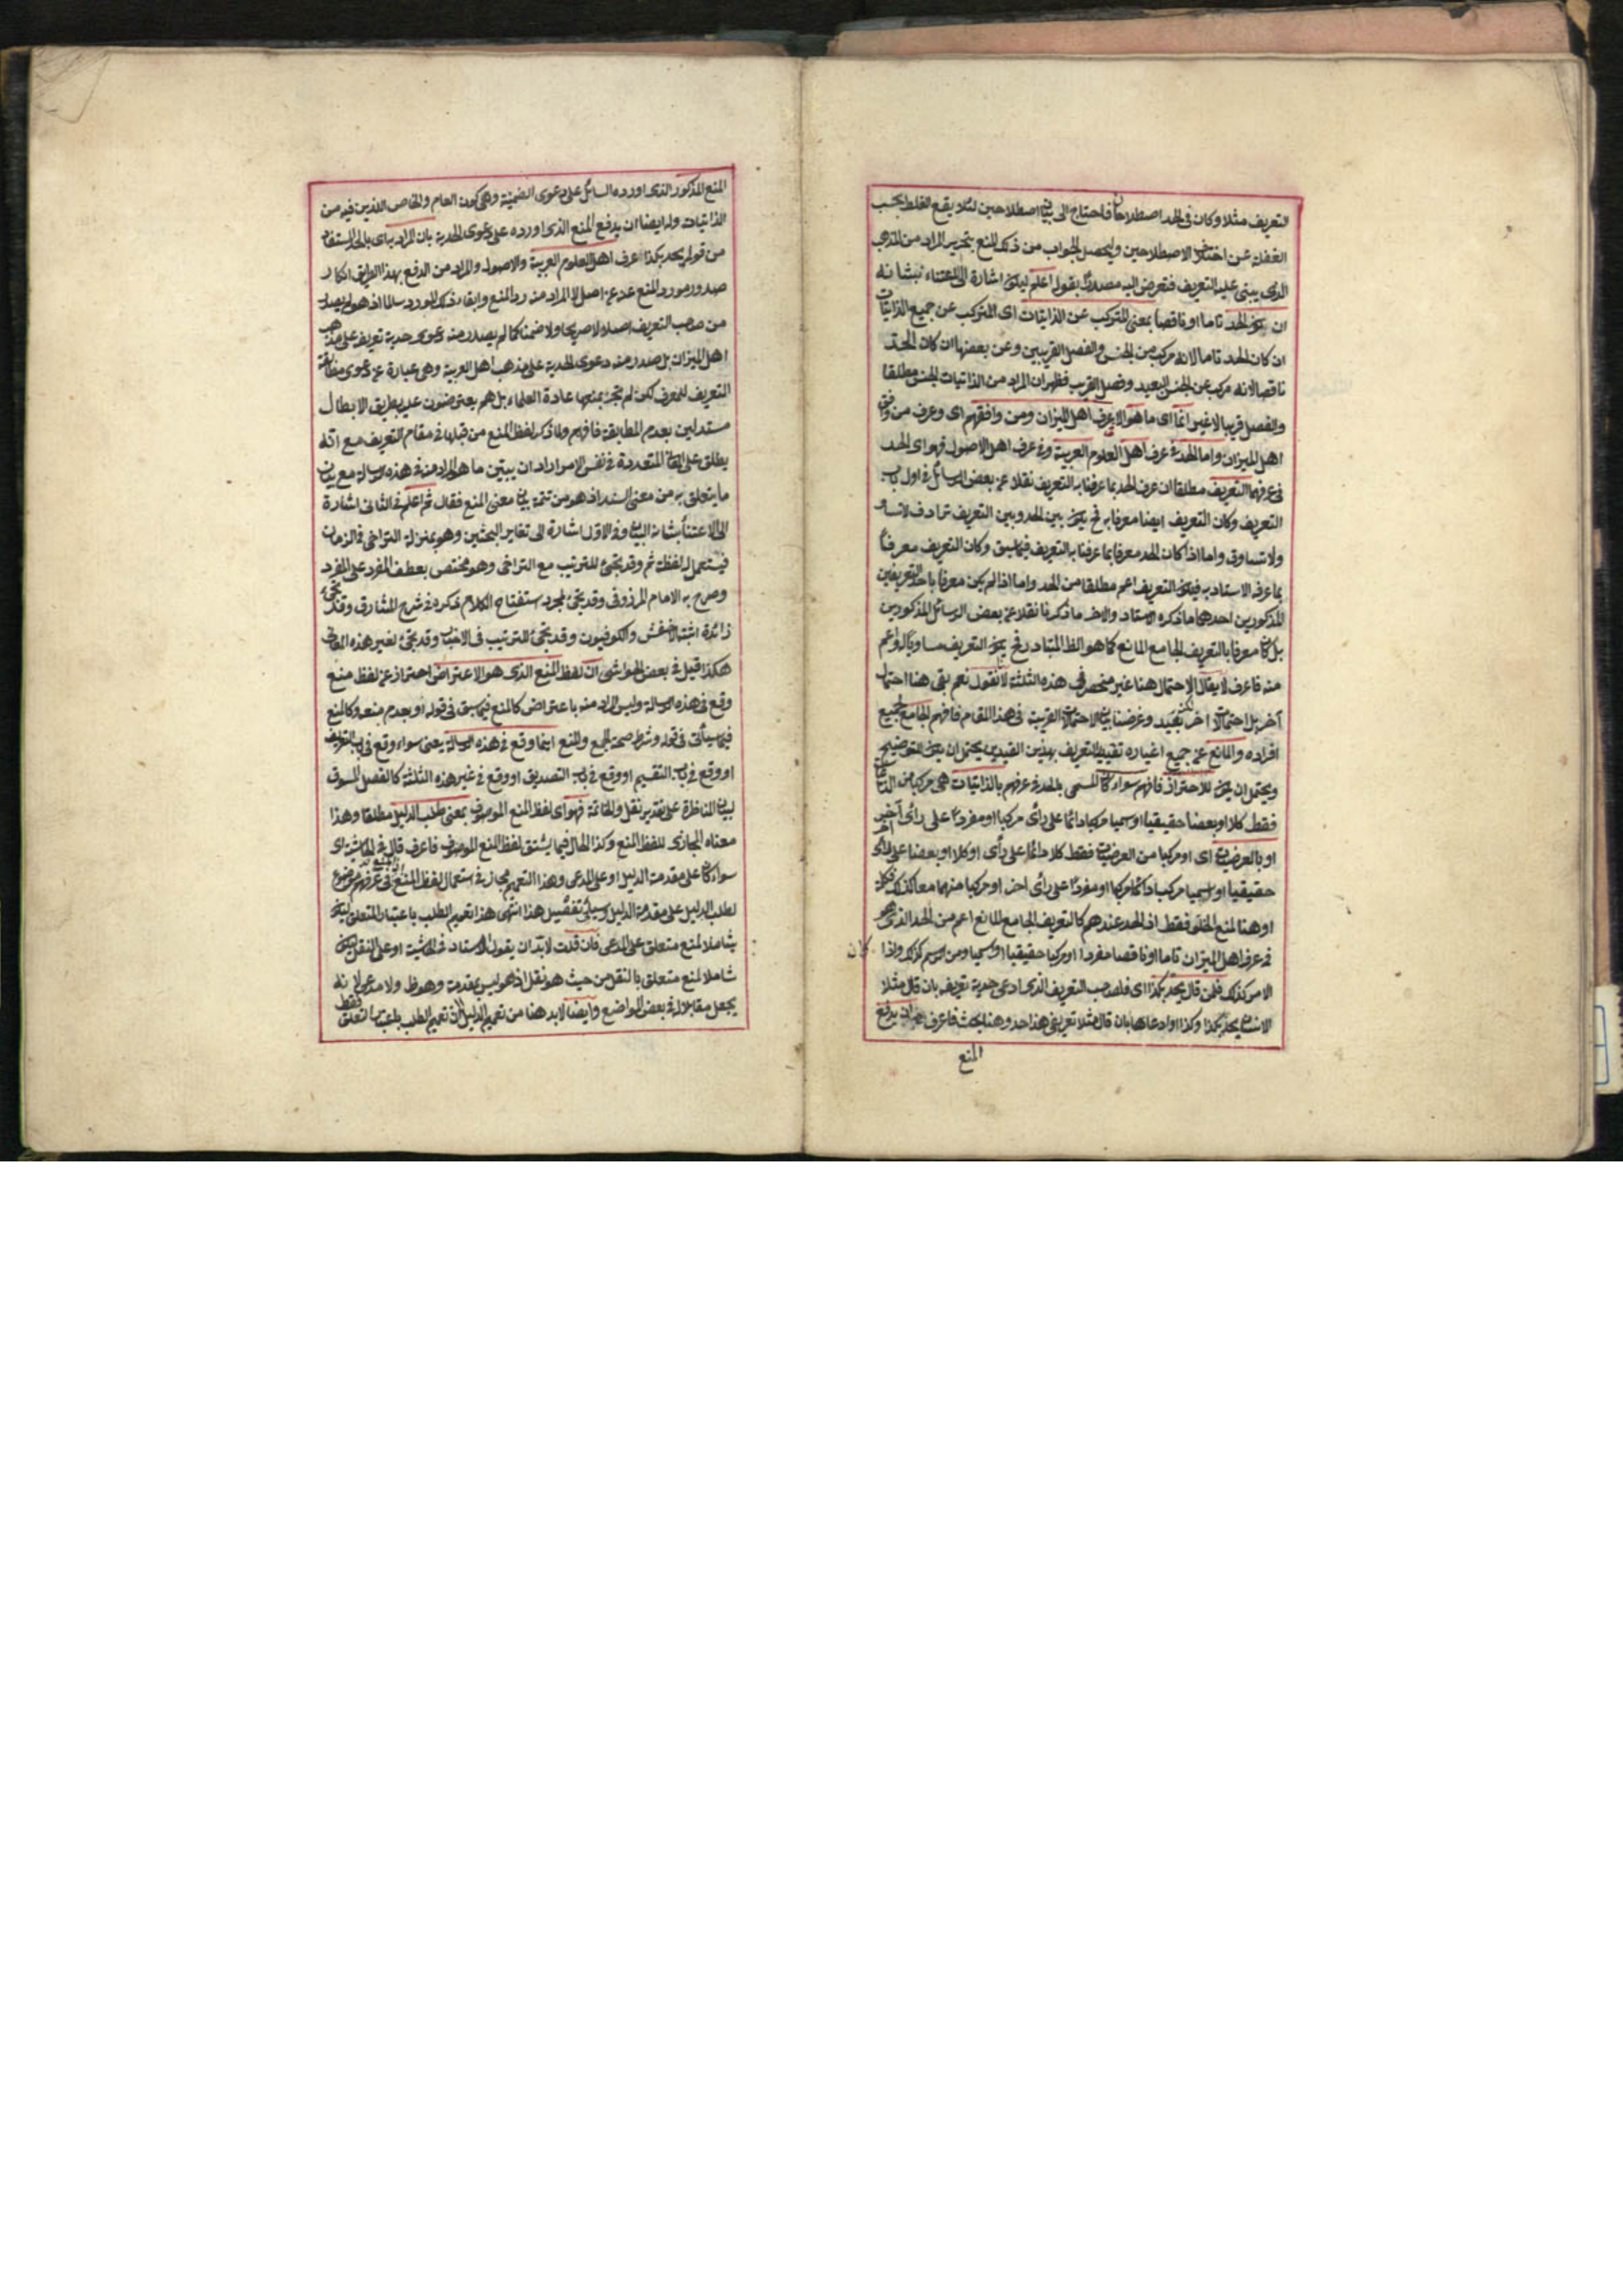 التعريف مثلا وكان فى الحد اصطلاحان فاحتاج الى بيان اصطلاحين لئلا يقع الغلط بحسب
الغفلة عن اختلاف الاصطلاحين وليحصل الجواب من ذلك المنع بتحرير المراد من المذهب
الذى يبتنى عليه التعريف فتعرض اليه مصدرا بقوله اعلم ليكون اشارة الى الاعتناء بشانه
ان يكون الحد تاما او ناقصا بمعنى المتركب عن الذاتيات اى المتركب عن جميع الذاتيات
ان كان الحد تاما لانه مركب من الجنس والفصل القريبين وعن بعضها ان كان الحد
ناقصا لانه مركب عن الجنس البعيد وفصل القريب فظهر ان المراد من الذاتيات الجنس مطلقا
والفصل قريبا لا غير انما اى ما هو الا عرف اهل الميزان ومن وافقهم اى وعرف من وافق
اهل الميزان واما الحد فى عرف اهل العلوم العربية وفى عرف اهل الاصول فهو اى الحد
فى عرفهما التعريف مطلقا ان عرف الحد بما عرفنا به التعريف نقلا عن بعض الرسائل فى اول باب
التعريف وكان التعريف ايضا معرفا به فح يكون بين الحد وبين التعريف ترادف لا تساو
ولا تساوق واما اذا كان الحد معرفا بما عرفنا به التعريف فيما سبق وكان التعريف معرفا
بما عرف الاستاد به فيكون التعريف اعم مطلقا من الحد واما اذا لم يكن معرفا باحد التعريفين
المذكورين احدهما ما ذكره الاستاد والاخر ما ذكرنا نقلا عن بعض الرسائل المذكورين
بل كان معرفا بالتعريف الجامع المانع كما هو الظ المتبادر فح يكون التعريف مساويا له او اعم
منه فاعرف لا يقال الاحتمال هنا غير منحصر فى هذه الثلثة لانا نقول نعم بقى هنا احتمال
آخر بل احتمالات اخر بعيد وغرضنا بيان الاحتمالات القريبة فى هذا المقام فافهم الجامع لجميع
افراده والمانع عن جميع اغياره تقييد التعريف بهذين القيدين يحتمل ان يكون للتوضيح
ويحتمل ان يكون للاحتراز فافهم سواء كان المسمى بالحد فى عرفهم بالذاتيات هى مركبا من الذاتيات
فقط كلا او بعضا حقيقيا او اسميا مركبا دائما على رأى مركبا او مفردا على رأى آخر
او بالعرضيات اى او مركبا من العرضيات فقط كلا دائما على رأى او كلا او بعضا على رأى آخر
حقيقيا او اسميا مركبا دائما مركبا او مفردا على رأى اخر او مركبا منهما معا كذلك فكلمة
او هنا لمنع الخلو فقط اذ الحد عندهم كالتعريف الجامع المانع اعم من الحد الذى هو
فى عرف اهل الميزان تاما او ناقصا مفردا او مركبا حقيقيا او اسميا ومن الرسم كذلك واذا كان
الامر كذلك فلمن قال يحد بكذا اى فلصاحب التعريف الذى ادعى حدية تعريفه بان قال مثلا
الانسان يحد بكذا وكذا او ادعاها بان قال مثلا تعريفى هذا حد وهنا بحث فاعرف ان يدفع
المنع
المنع المذكور الذى اورده السائل على دعوى الضمنية وهى كون العام والخاص اللذين فيه من
الذاتيات وله ايضا ان يدفع المنع الذى اورده على دعوى الحدية بان المراد به اى بالحد المستفاد
من قوله يحد بكذا عرف اهل العلوم العربية والاصول والمراد من الدفع بهذا الطريق انكار
صدور مورد المنع عن اصل لا المراد منه رد المنع وابقاء ذلك المورد سالما اذ هو لم يصدر
من صاحب التعريف اصلا لا صريحا ولا ضمنا كما لم يصدر منه دعوى حدية تعريفه على مذهب
اهل الميزان بل صدر منه دعوى الحدية على مذهب اهل العربية وهى عبارة عن دعوى مطابقة
التعريف للمعرف لكن لم تجر بمنعها عادة العلماء بل هم يعترضون عليه بطريق الابطال
مستدلين بعدم المطابقة فافهم ولما ذكر لفظ المنع من قبلها فى مقام التعريف مع انه
يطلق على المعانى المتعددة فى نفس الامر اراد ان يبين ما هو المراد منه فى هذه الرسالة مع بيان
ما يتعلق به من معنى السند اذ هو من تتمة بيان معنى المنع فقال ثم اعلم فى الثانى اشارة
الى الاعتناء بشانه البيان وفى الاول اشارة الى تغاير البحثين وهو بمنزلة التراخى فى الزمان
فيستعمل له لفظة ثم وقد تجئ للترتيب مع التراخى وهو مختص بعطف المفرد على المفرد
وصرح به الامام المرزوقى وقد تجئ لمجرد استفتاح الكلام ذكره فى شرح المشارق وقد تجئ
زائدة اثبته الاخفش والكوفيون وقد تجئ للترتيب فى الاخبار وقد تجئ لغير هذه المعانى
هكذا قيل فى بعض الحواشى ان لفظ المنع الذى هو الاعتراض احتراز عن لفظ منع
وقع فى هذه الرسالة وليس المراد منه باعتراض كالمنع فيما سبق فى قوله او بعدم منعه وكالمنع
فيما سيأتى فى قوله وشرط صحة الجمع والمنع اينما وقع فى هذه الرسالة يعنى سواء وقع فى باب التعريف
او وقع فى باب التقسيم او وقع فى باب التصديق او وقع فى غير هذه الثلثة كالفصل المسوق
لبيان المناظرة على تقدير نقل والخاتمة فهو اى لفظ المنع الموصوف بمعنى طلب الدليل مطلقا وهذا
معناه المجازى للفظ المنع وكذا الحال فيما يشتق لفظ المنع الموصوف فاعرف قال فى الحاشية اى
سواء كان على مقدمة الدليل او على المدعى وهذا التعميم مجاز فى استعمال لفظ المنع لانه فى عرفهم موضوع
لطلب الدليل على مقدمة الدليل وسيأتى تفصيل هذا انتهى هذا تعميم الطلب باعتبار المتعلق ليكون
شاملا لمنع متعلق على المدعى فان قلت لابد ان يقول الاستاد فى الحاشية او على النقل ليكون
شاملا لمنع متعلق بالنقل من حيث هو نقل اذ هو ليس بمقدمة وهو ظ ولا مدعى لانه
يجعل مقابلا له فى بعض المواضع وايضا لابد هنا من تعميم الدليل لان تعميم الطلب باعتبار المتعلق فقط